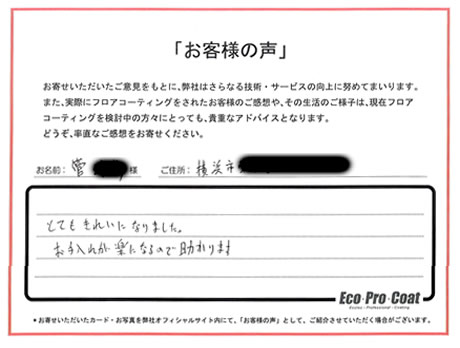 「お客様の声」
お寄せいただいたご意見をもとに、弊社はさらなる技術・サービスの向上に努めてまいります。
また、実際にフロアコーティングをされたお客様のご感想や、その生活のご様子は、現在フロア
コーティングを検討中の方々にとっても、貴重なアドバイスとなります。
どうぞ、率直なご感想をお寄せください。
お名前： 菅 様 ご住所： 横浜市
とてもきれいになりました。
お手入れが楽になるので助かります
Eco・Pro・Coat
*お寄せいただいたカード・お写真を弊社オフィシャルサイト内にて、「お客様の声」として、ご紹介させていただく場合がございます。